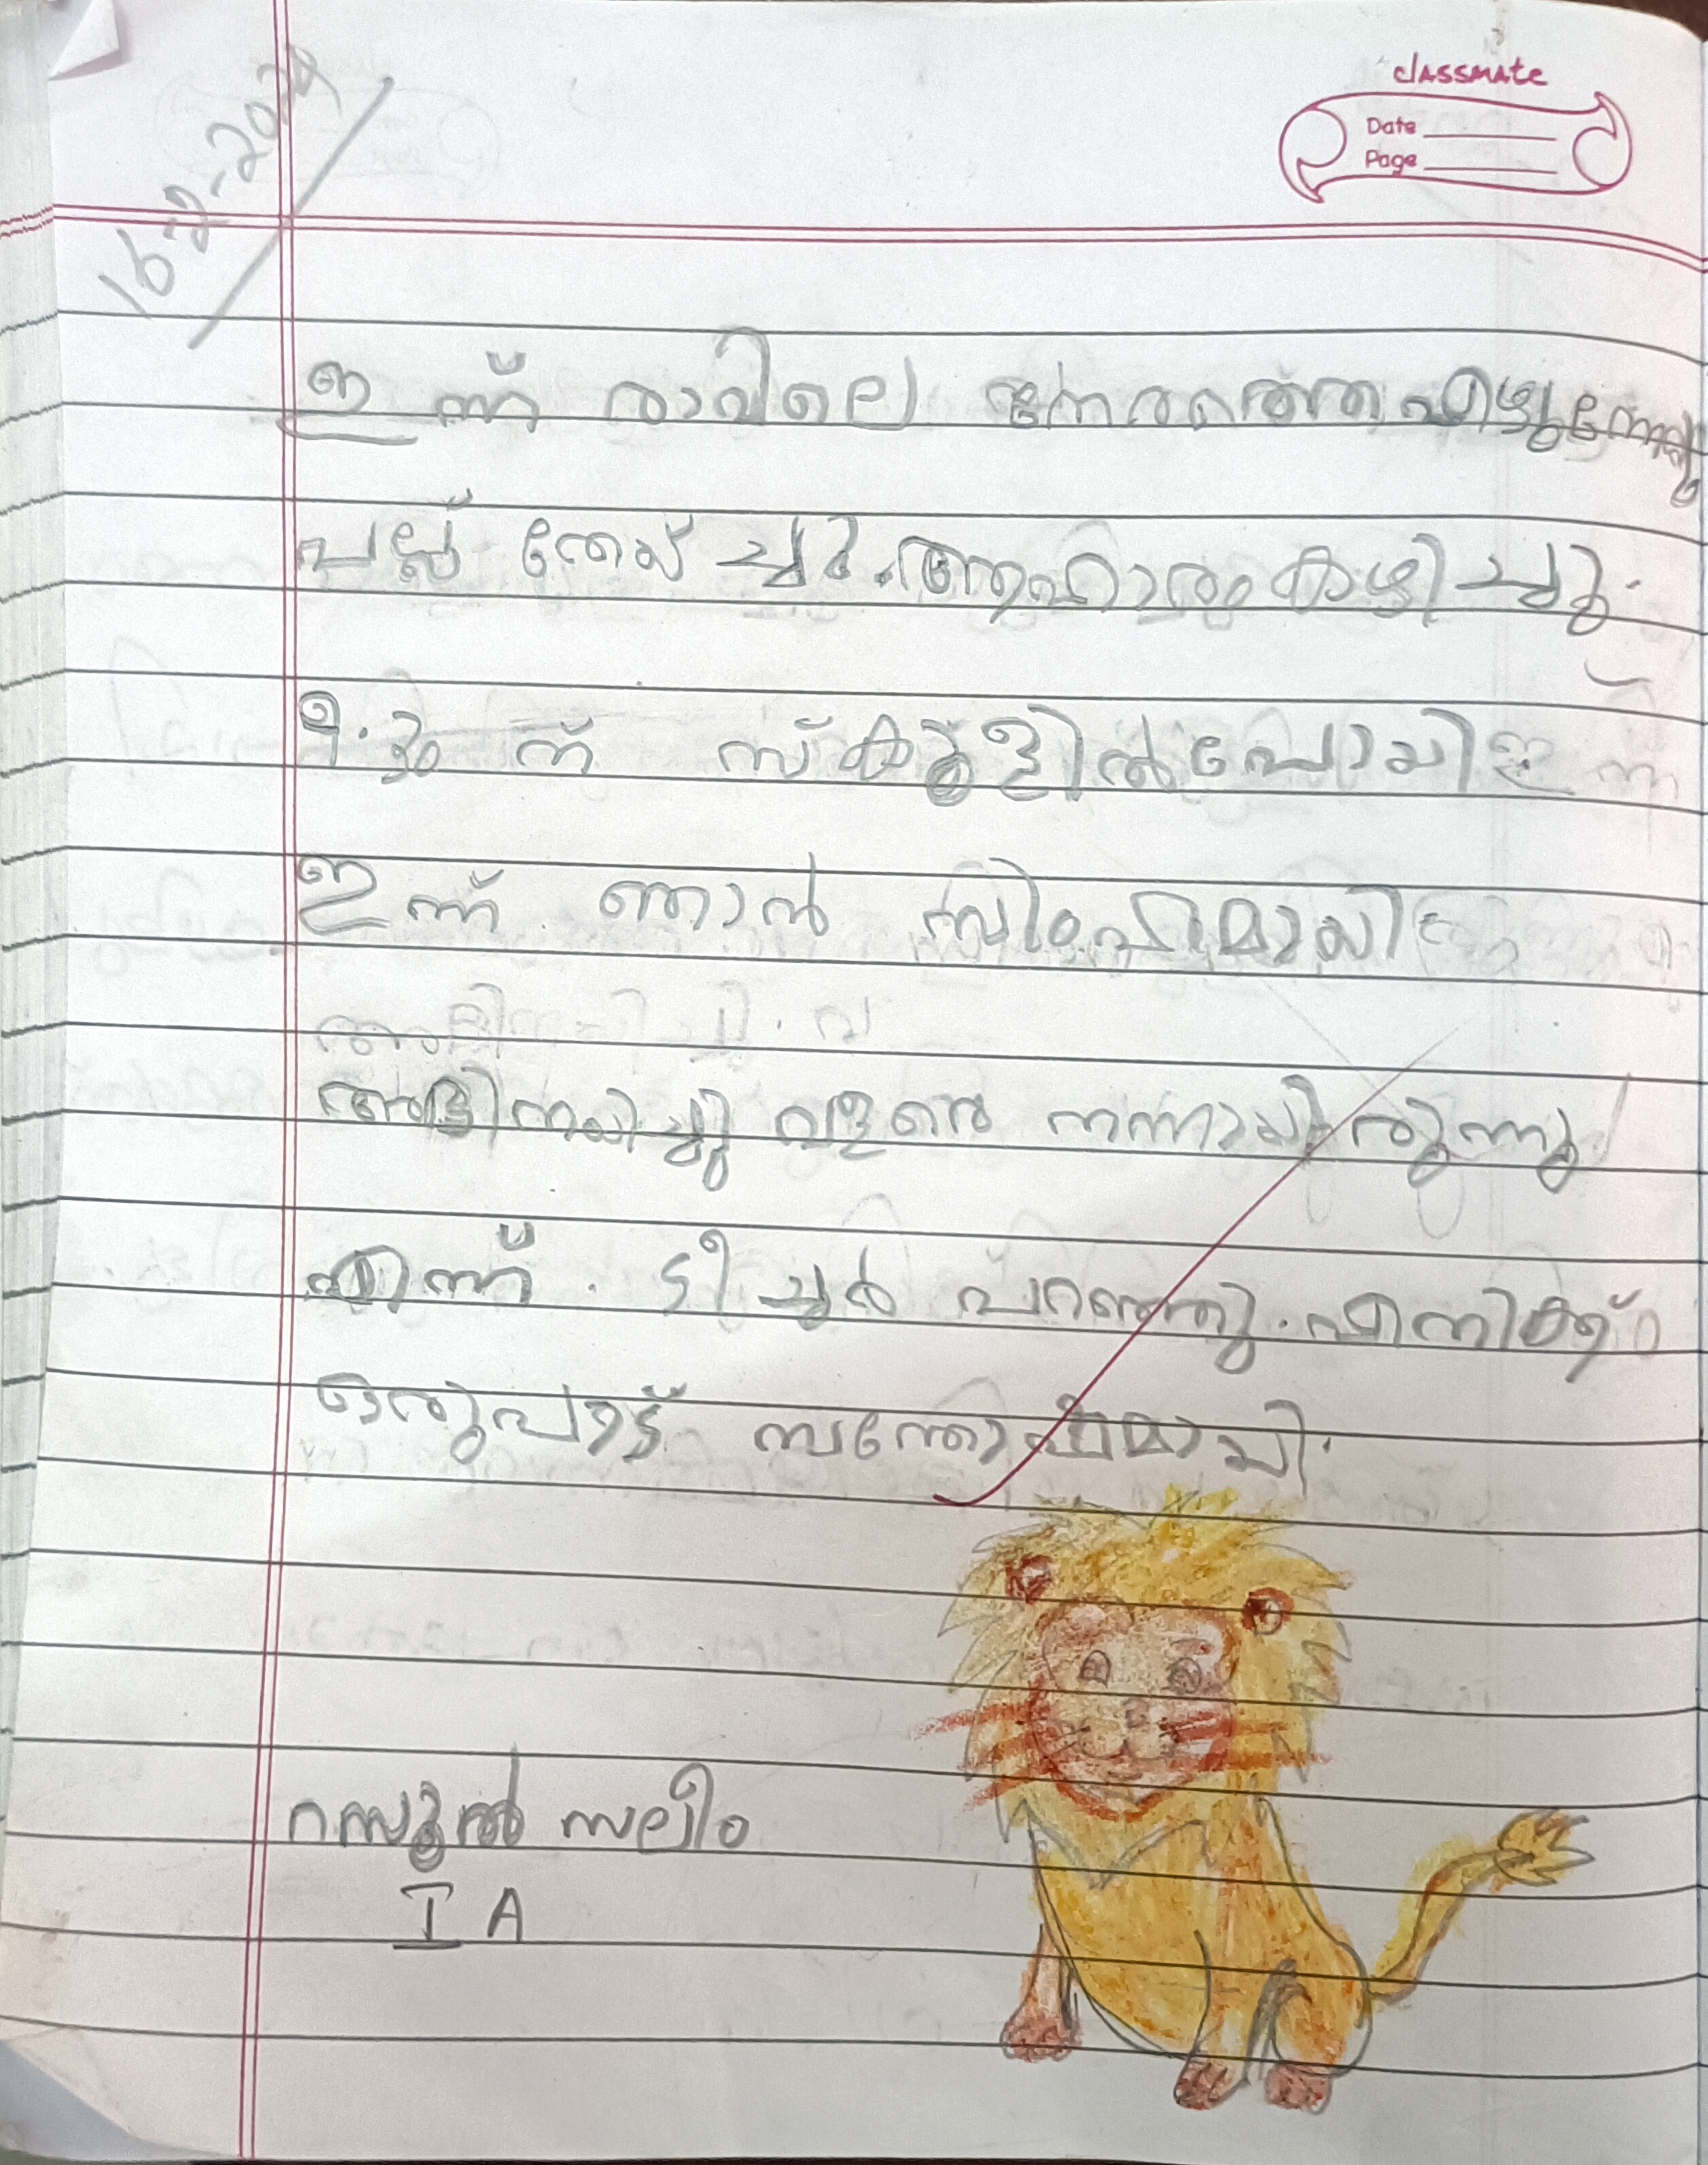 classmate
Date
Page
16-2-2024
ഇന്ന് രാവിലെ നേരത്തെ എഴുന്നേറ്റു
പല്ല് തേയ്ച്ചു. ആഹാരം കഴിച്ചു.
9.30 ന് സ്കൂളിൽ പോയി
ഇന്ന് ഞാൻ സിംഹമായി
അഭിനയിച്ചു വളരെ നന്നായിരുന്നു
എന്ന്. ടീച്ചർ പറഞ്ഞു. എനിക്ക്
ഒരുപാട് സന്തോഷമായി.
റസൂൽ സലീം
I A